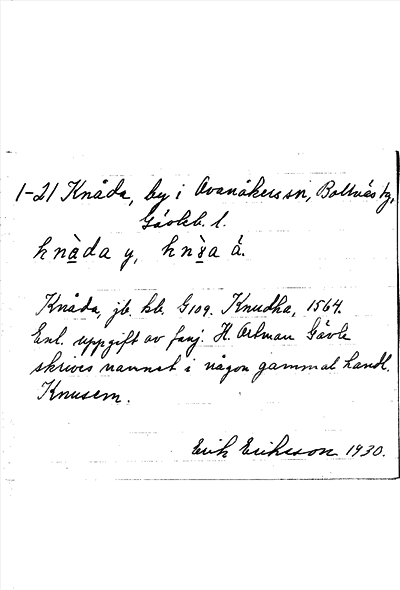 1-21 Knåda, by i Ovanåkers sn, Bollnäs tg,
Gävleb. l.
knàda y, knàa ä.
Knåda, jb. kb. G109. Knudha, 1564.
Enl. uppgift av fanj. H. Ortman Gävle
skrives namnet i någon gammal handl.
Knusem.
Erik Eriksson 1930.